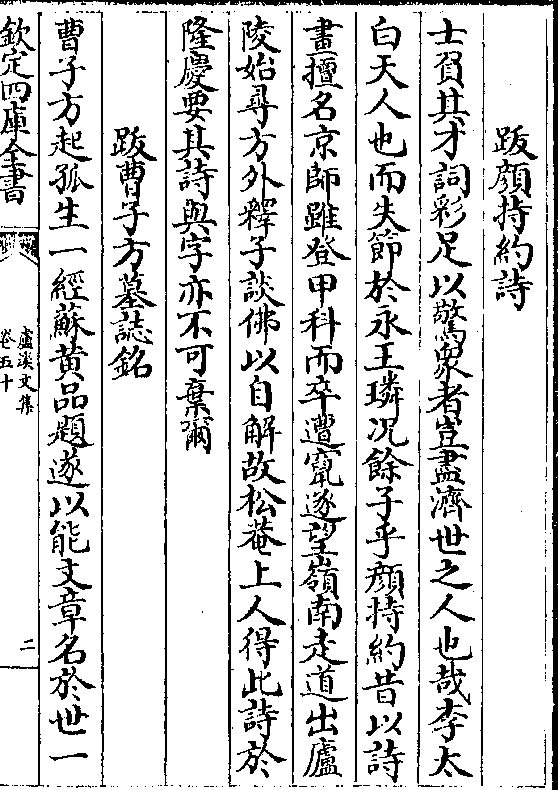 跋顔持約詩
士負其才詞彩足以驚衆者豈盡濟世之人也哉李太
白天人也而失節於永王璘况餘子乎顔持約昔以詩
畫擅名京師雖登甲科而卒遭竄逐望嶺南走道出廬
陵始尋方外釋子談佛以自解故松菴上人得此詩於
隆慶要其詩與字亦不可棄爾
跋曹子方墓誌銘
曹子方起孤生一經蘇黄品題遂以能文章名於世一
欽定四庫全書
盧溪文集
卷五十
二